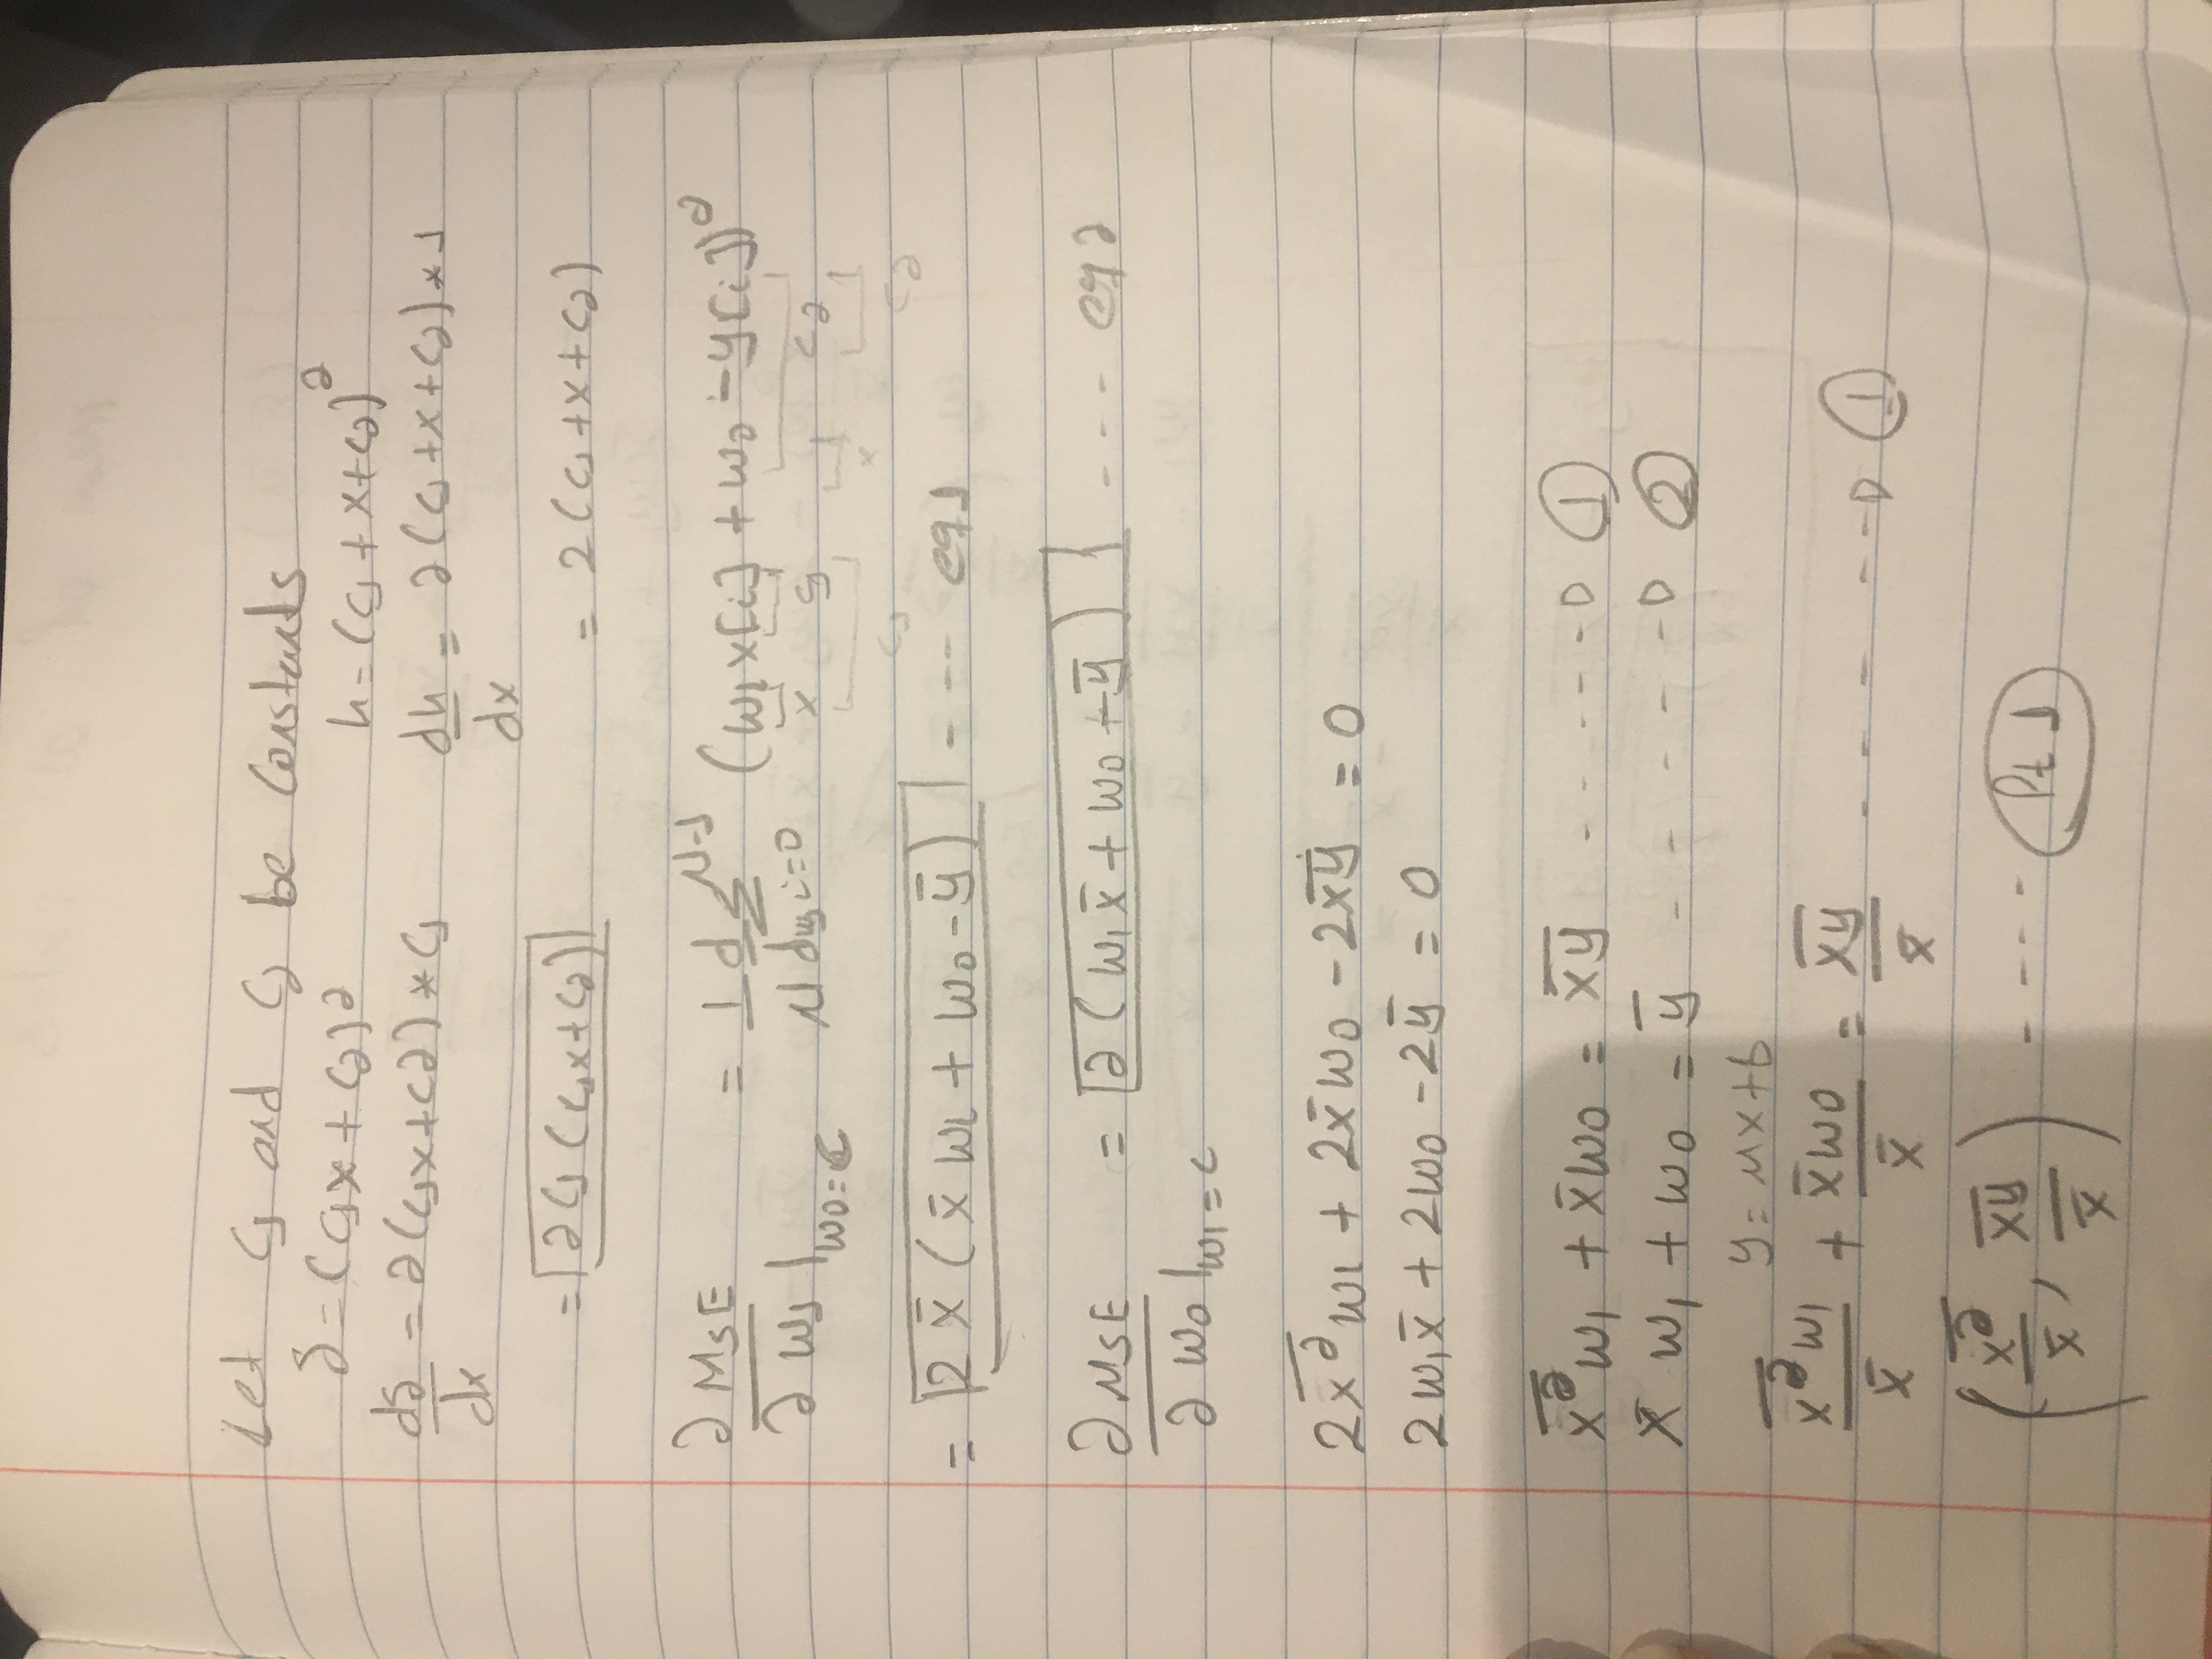 Let c₁ and c₂ be constants
g = (c₁x + c₂)²    h = (c₁ + x + c₂)²
dg/dx = 2(c₁x + c2) * c₁    dh/dx = 2(c₁ + x + c₂) * 1
= 2c₁(c₁x + c₂)    = 2(c₁ + x + c₂)
∂MSE/∂w₁ |w₀=c = 1/N d/dw₁ Σ i=0 N-1 (w₁x[i] + w₀ - y[i])²
x c₁ c₂
c₁ x c₂
= 2x̄(x̄w₁ + w₀ - ȳ) --- eq1
∂MSE/∂w₀ |w₁=c = 2(w₁x̄ + w₀ + ȳ) --- eq2
2x̅²̅w₁ + 2x̄w₀ - 2x̅y̅ = 0
2w₁x̄ + 2w₀ - 2ȳ = 0
x̅²̅w₁ + x̄w₀ = x̅y̅ ------> ①
x̄ w₁ + w₀ = ȳ ------> ②
y = mx + b
x̅²̅w₁/x̄ + x̄w₀/x̄ = x̅y̅/x̄ ------> ①
(x̅²̅/x̄, x̅y̅/x̄) ---- Pt 1